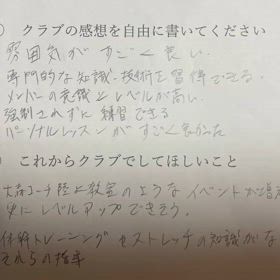 クラブの感想を自由に書いてください
雰囲気がすごく良い.
専門的な知識・技術を習得できる.
メンバーの意識とレベルが高い.
強制されずに練習できる
パーソナルレッスンがすごく良かった
これからクラブでしてほしいこと
コーチ陸上教室のようなイベントが増え
更にレベルアップできそう.
体幹トレーニング ストレッチの知識がな
それらの指導